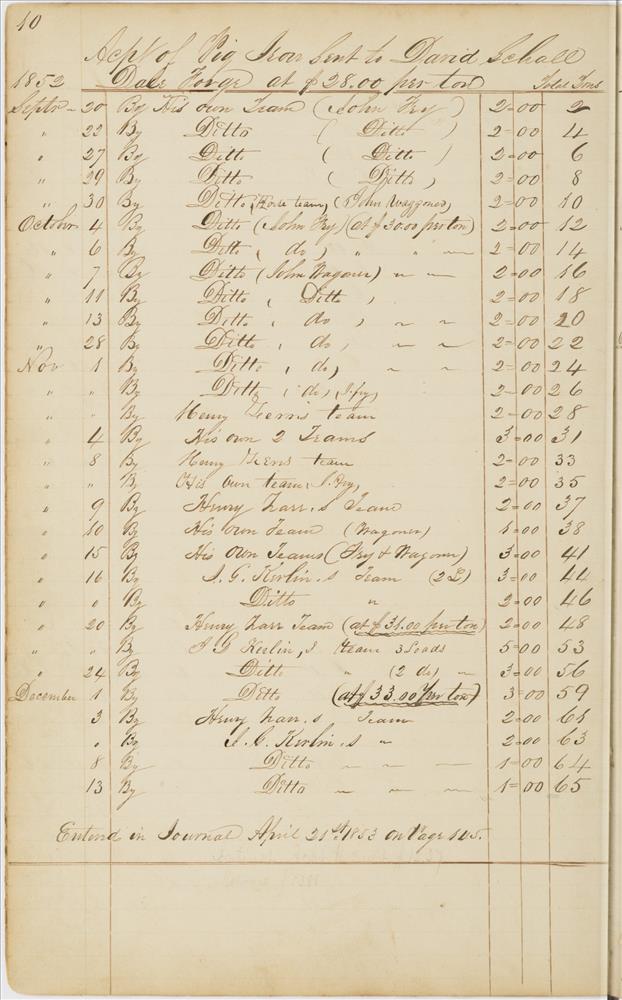 40
Acpt of Pig Iron Sent to David Schall
1852 Dale Forge at $28.00 per ton Total Tons
Septr 20 By His own Team (John Fry) 2=00 2
" 22 By Ditto ( Ditto ) 2=00 4
" 27 By Ditto ( Ditto ) 2=00 6
" 29 By Ditto ( Ditto ) 2=00 8
" 30 By Ditto (Horse team) (John Waggoner) 2=00 10
October 4 By Ditto (John Fry) (at $30.00 per ton) 2=00 12
" 6 By Ditto ( do ) " " 2=00 14
" 7 By Ditto (John Wagoner) " 2=00 16
" 11 By Ditto ( Ditto ) 2=00 18
" 13 By Ditto ( do ) " " 2=00 20
" 28 By Ditto ( do ) " " 2=00 22
Nov 1 By Ditto ( do ) " " 2=00 24
" " By Ditto ( do ) J. Fry 2=00 26
" " By Henry team 2=00 28
" 4 By His own 2 Teams 3=00 31
" 8 By Henry team 2=00 33
" " By His own team J. Fry 2=00 35
" 9 By Henry Team 2=00 37
" 10 By His own Team (Wagoner) 1=00 38
" 15 By His own Teams (Fry & Wagoner) 3=00 41
" 16 By J. G. Kerlin,s Team (2 L) 3=00 44
" " By Ditto " 2=00 46
" 20 By Henry Team (at $31.00 per ton) 2=00 48
" " By J G Kerlin,s team 3 Loads 5=00 53
" 24 By Ditto " (2 do) " 3=00 56
December 1 By Ditto (at $33.00 Per ton) 3=00 59
3 By Henry Team 2=00 61
" By J. G. Kerlin,s " 2=00 63
8 By Ditto 1=00 64
13 By Ditto 1=00 65
Enterd in Journal April 21st 1853 on Page 145.